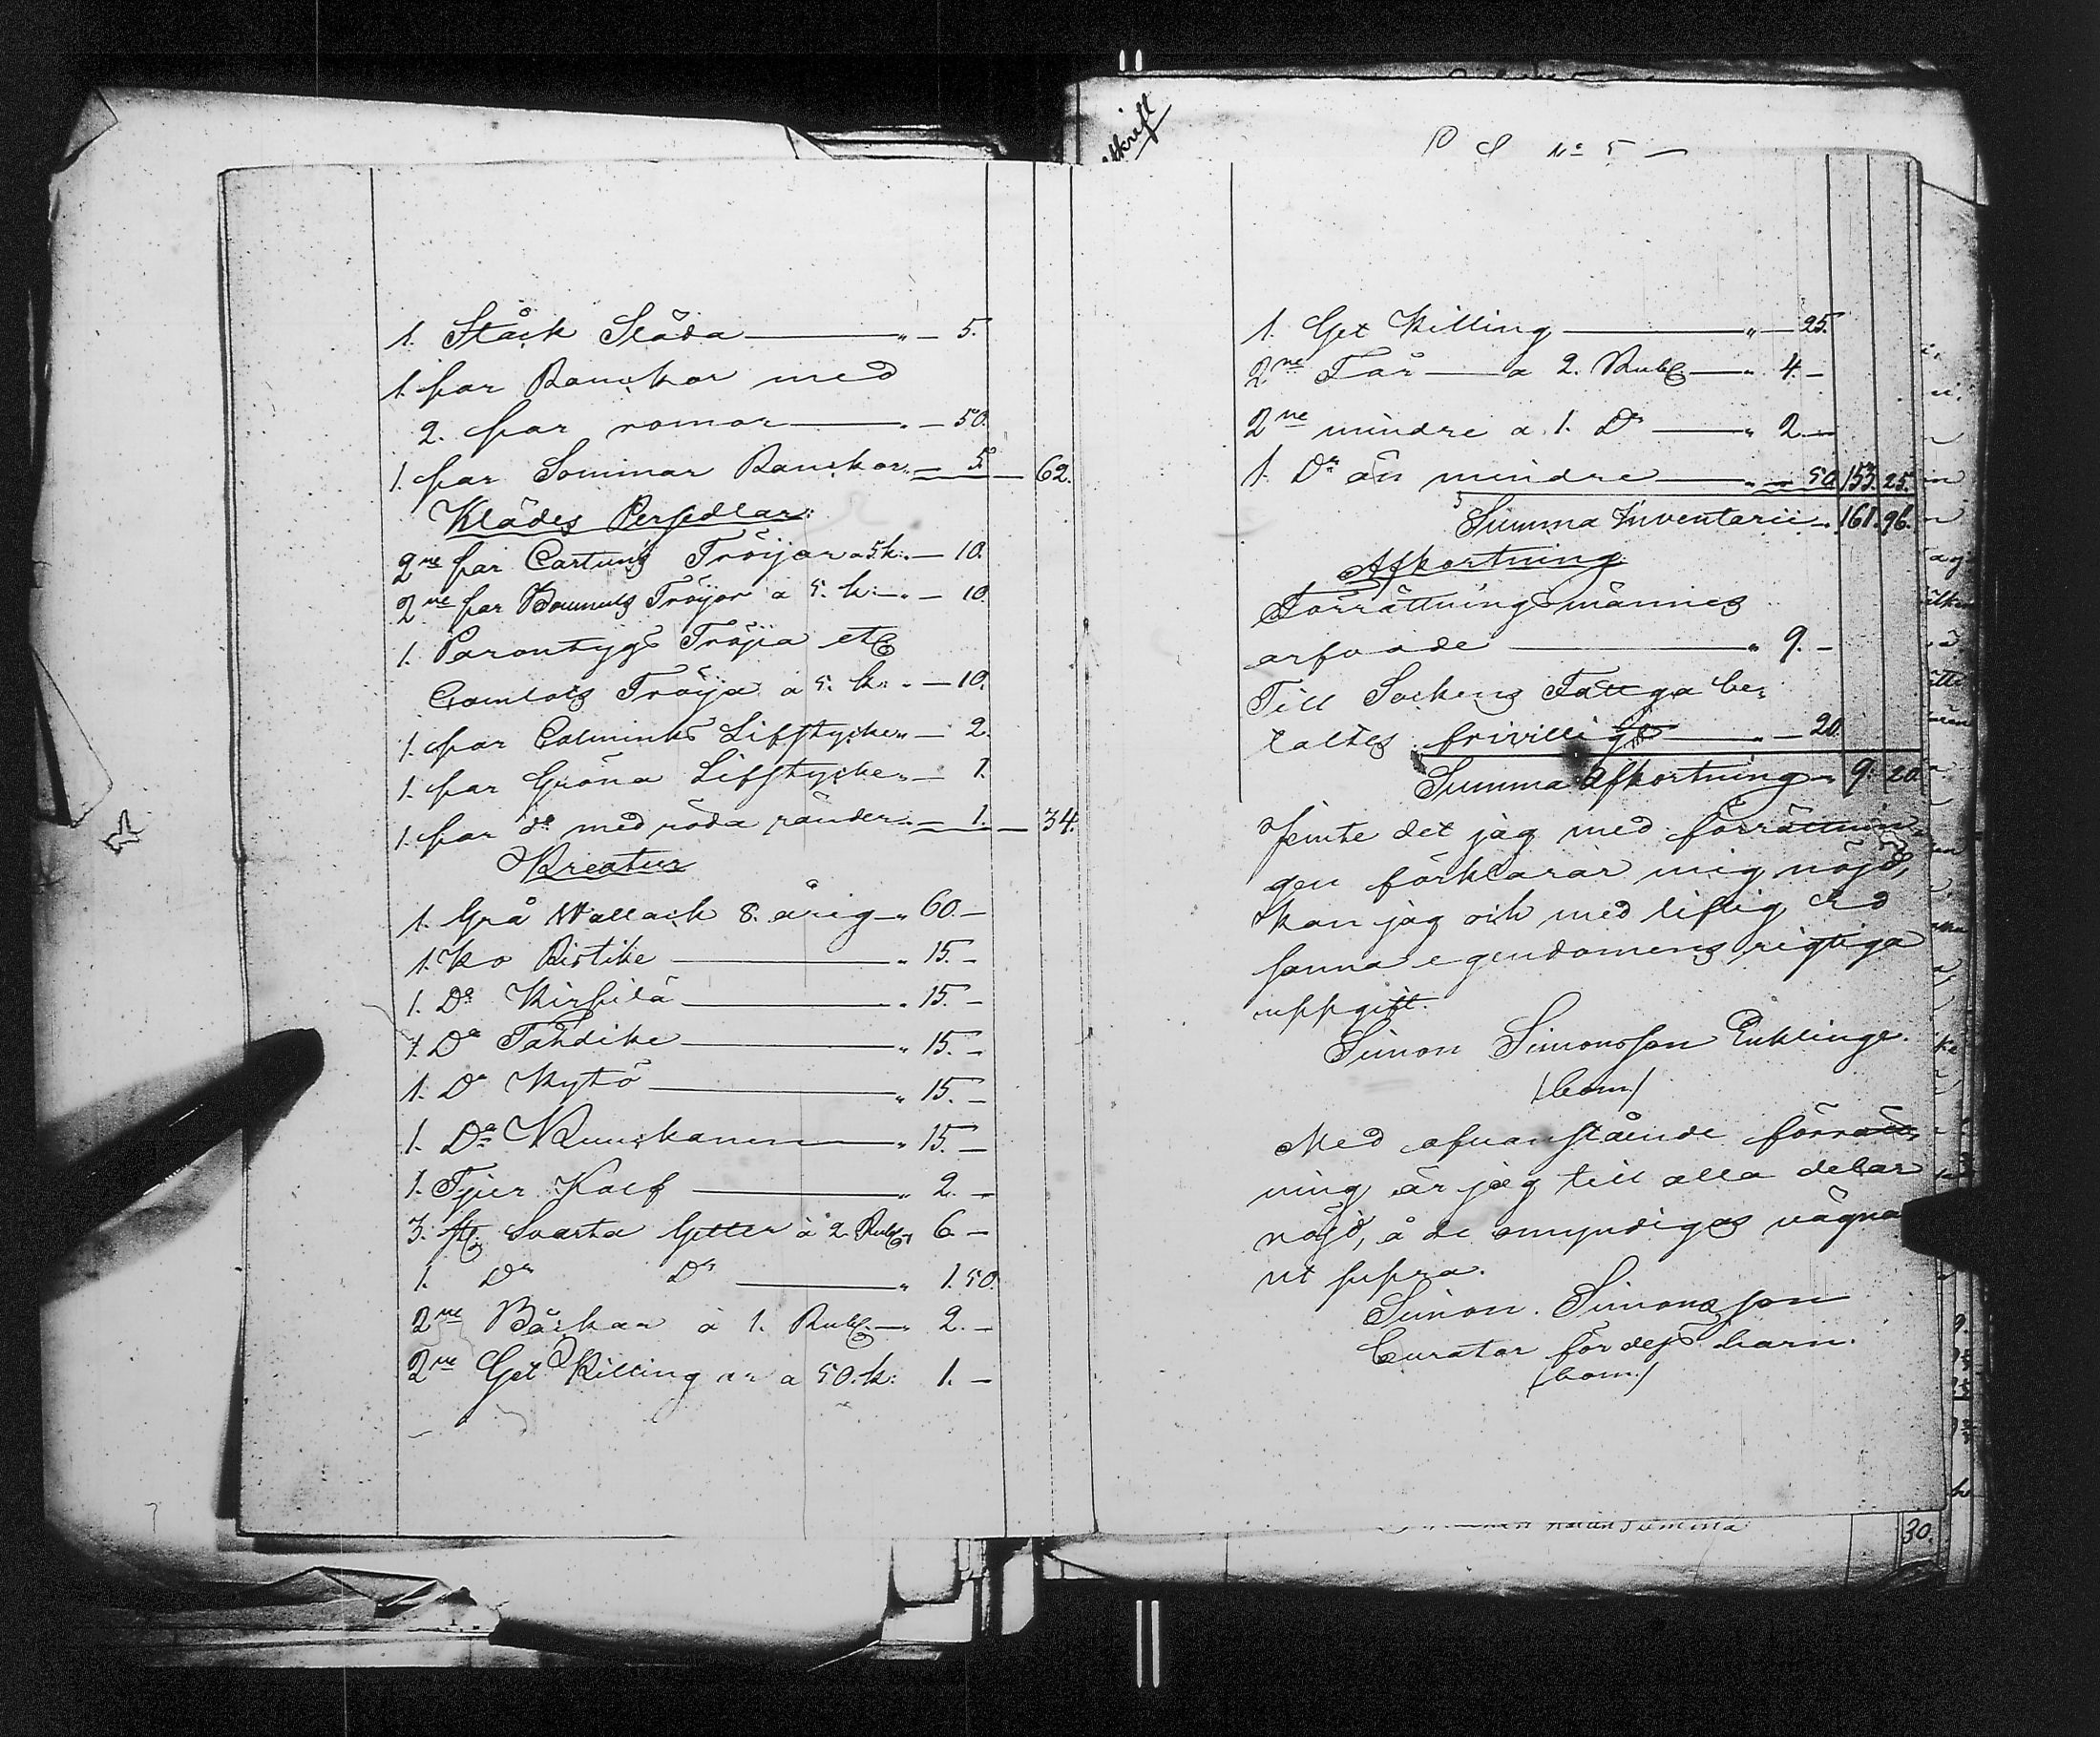 1. Ståck Släda — „ — 5.
1. par Ranckor med
2. par romor — „ — 50.
1. par Sommar Ranckor „ — 5. — 62.
Klädes Persedlar:
2ne par Cartuns Tröijor a 5 k: „ — 10.
2ne par Bomuls Tröijor a 5. k: — „ — 10.
1. Tröija etc
Camlots Tröija a 5. k: „ — 10.
1. par Calminks Lifstycke „ — 2.
1. par Gröna Lifstycke „ — 1.
1. par do med röda ränder „ — 1. — 34.
Kreatur
1. Grå Wallack 8. årig „ 60. —
1. Ko Ristike — „ 15. —
1. Do Kirsilä — „ 15. —
1. Do Tähdike — „ 15. —
1. Do Kytö — „ 15. —
1. Do — „ 15. —
1. Tjur Kalf — „ 2. —
3. st. Svarta Getter à 2. Rub. „ 6. —
1. Do Do — „ 1. 50.
2ne Båckar à 1. Rub. — „ 2. —
2ne Get Killingar a 50. k: 1. —
No 5 —
1. Get Killing — „ — 25.
2ne Får — a 2. Rub. — „ 4. —
2ne mindre a 1. Do — „ 2. —
1. Do än mindre — „ — 50. 153. 25.
Summa Inventarii „ 161. 96.
Afkortning
Förrättningsmännes
arfvode — „ 9. —
Till Sockens Fattiga be=
taltes frivilligt — „ — 20.
Summa Afkortning „ 9. 20.
Jemte det jag med förrättnin=
gen förklarar mig nöjd,
kan jag ock med liflig Ed
sanna egendomens rigtiga
uppgift.
Simon Simonsson Enklinge.
/bom./
Med ofvanstående förrätt=
ning är jag till alla delar
nöjd, å de omyndigas vägna
ut supra.
Simon Simonsson
Curator för dess barn.
/bom./
30.